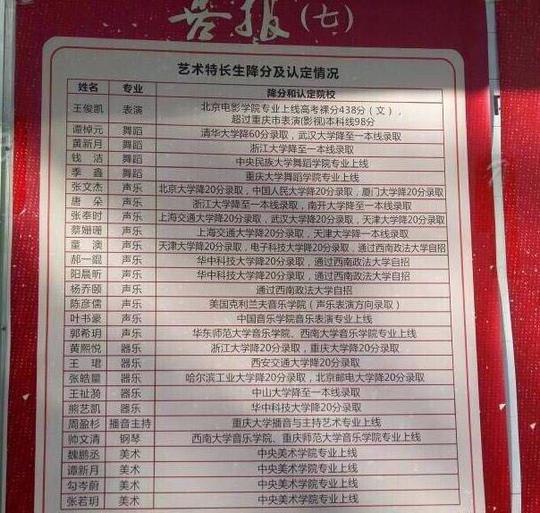 喜报（七）
艺术特长生降分及认定情况
姓名 专业 降分和认定院校
王俊凯 表演 北京电影学院专业上线高考裸分438分（文），
超过重庆市表演(影视)本科线98分
谭棹元 舞蹈 清华大学降60分录取，武汉大学降至一本线录取
黄新月 舞蹈 浙江大学降至一本线录取
钱洁 舞蹈 中央民族大学舞蹈学院专业上线
季鑫 舞蹈 重庆大学舞蹈学院专业上线
张文杰 声乐 北京大学降20分录取，中国人民大学降20分录取，厦门大学降20分录取
唐朵 声乐 浙江大学降至一本线录取，南开大学降至一本线录取
张奉时 声乐 上海交通大学降20分录取，武汉大学降20分录取，天津大学降20分录取
蔡姗珊 声乐 上海交通大学降20分录取，天津大学降一本线录取
童澳 声乐 天津大学降20分录取，电子科技大学降20分录取，通过西南政法大学自招
郝一锟 声乐 华中科技大学降20分录取，通过西南政法大学自招
阳晨昕 声乐 华中科技大学降20分录取，通过西南政法大学自招
杨乔颐 声乐 通过西南政法大学自招
陈彦儒 声乐 美国克利兰夫音乐学院（声乐表演方向录取）
叶书豪 声乐 中国音乐学院音乐表演专业上线
郭希玥 声乐 华东师范大学音乐学院、西南大学音乐学院专业上线
黄熙悦 器乐 浙江大学降20分录取，重庆大学降20分录取
王珺 器乐 西安交通大学降20分录取
张皓量 器乐 哈尔滨工业大学降20分录取，北京邮电大学降20分录取
王祉漪 器乐 中山大学降至一本线录取
熊艺凯 器乐 华中科技大学降20分录取
周盈杉 播音主持 重庆大学播音与主持艺术专业上线
帅文清 钢琴 西南大学音乐学院、重庆师范大学音乐学院专业上线
魏鹏丞 美术 中央美术学院专业上线
谭新月 美术 中央美术学院专业上线
勾岑蔚 美术 中央美术学院专业上线
张若玥 美术 中央美术学院专业上线